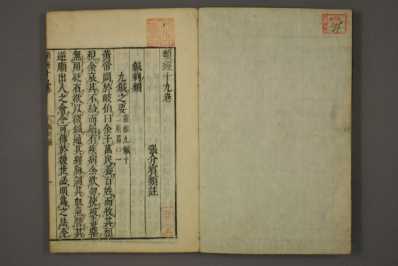 類經十九卷
張介賓類註
鍼刺類
九鍼之要
黃帝問於岐伯曰余子萬民養百姓而收其租
稅余哀其不給而屬有疾病余欲勿使被毒藥
無用砭石欲以微鍼通其經脉調其血氣營其
逆順出入之會令可傳於後世必明爲之法令